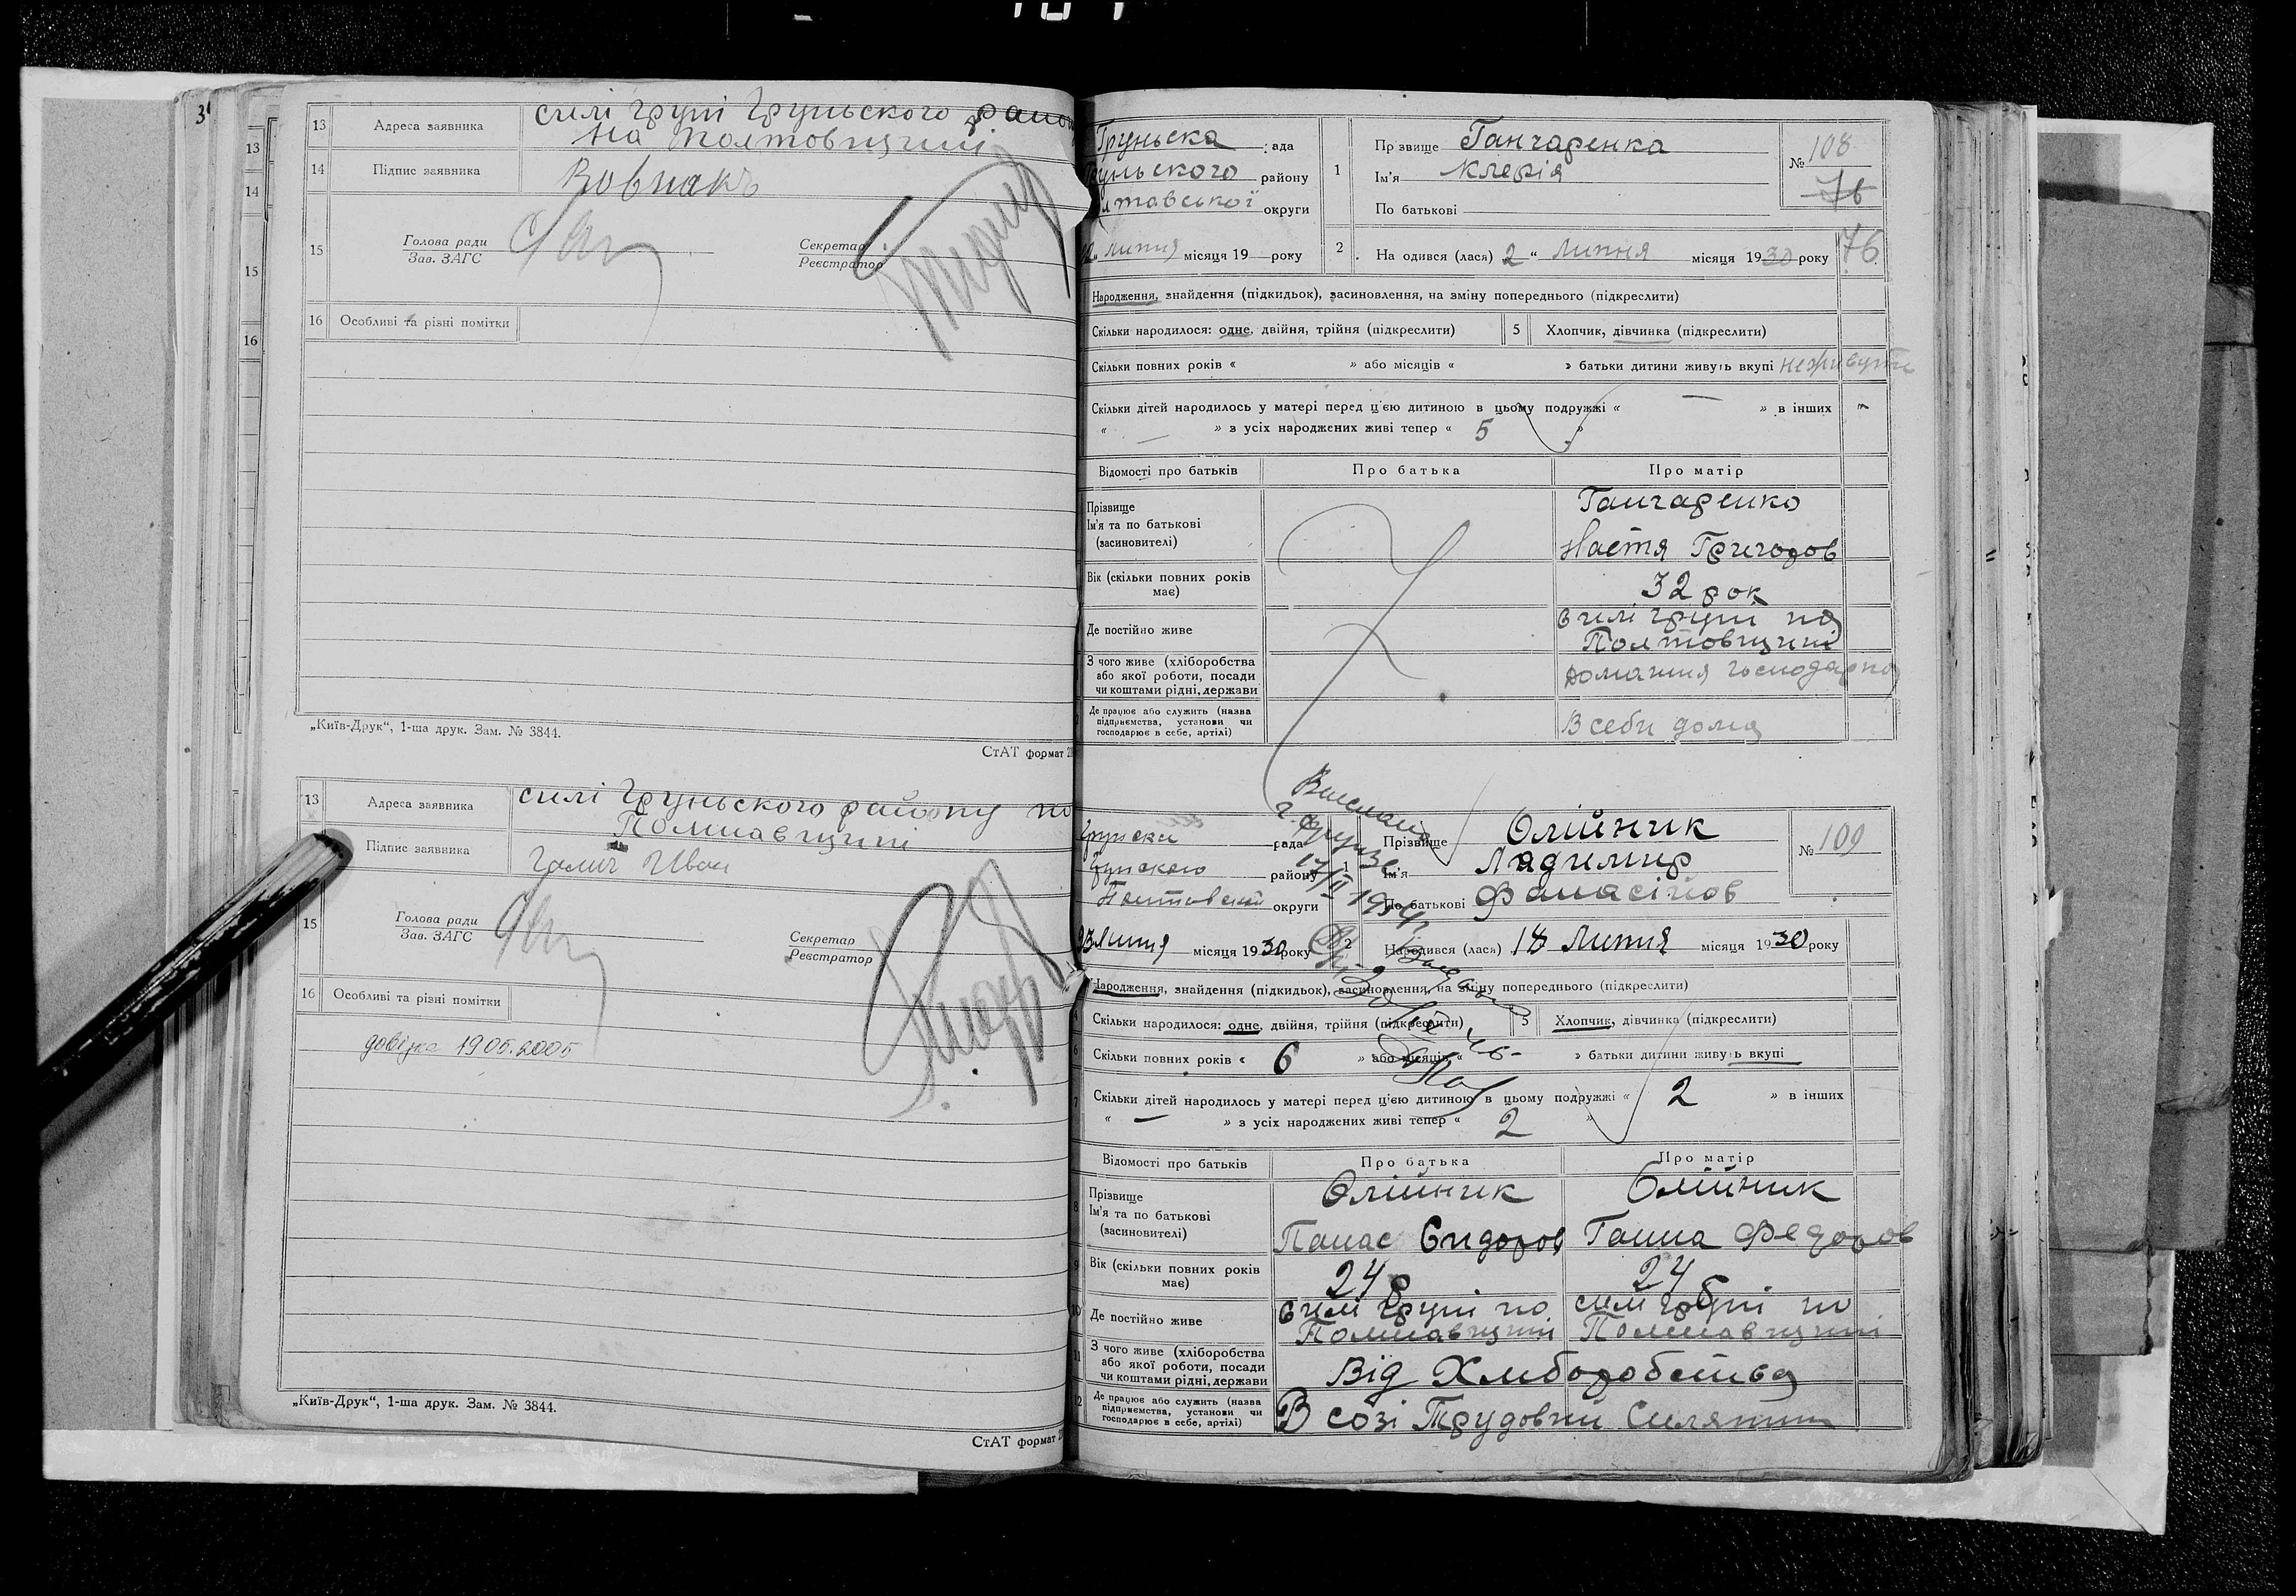 13 Адреса заявника силі Груні Груньського район
на Полтовщині
14 Підпис заявника Вовнакъ
15 Голова ради
Зав. ЗАГС
Секретар
Реєстратор
16 Особливі та різні помітки
„Київ-Друк“, 1-ша друк. Зам. № 3844.
СтАТ формат
13 Адреса заявника силі Груньского району по
Полтавщині
Підпис заявника Галич Иван
15 Голова ради
Зав. ЗАГС
Секретар
Реєстратор
16 Особливі та різні помітки
довідка 1905.2005
„Київ-Друк“, 1-ша друк. Зам. № 3844.
СтАТ формат
Груньска рада
руньского району
лтавської округи
липня місяця 19 року
1 Прізвище Ганчаренка
Ім'я Клерія
По батькові
№ 108
76
2 На одився (лася) 2 “ липня місяця 1930 року 76
Народження, знайдення (підкидьок), засиновлення, на зміну попереднього (підкреслити)
Скільки народилося: одне, двійня, трійня (підкреслити) 5 Хлопчик, дівчинка (підкреслити)
Скільки повних років « » або місяців « » батьки дитини живуть вкупі неживуть
Скільки дітей народилось у матері перед цією дитиною в цьому подружжі « — » в інших -
« — » з усіх народжених живі тепер « 5 »
Відомості про батьків Про батька Про матір
Прізвище Ганчаренко
Ім'я та по батькові
(засиновителі) Настя Григоров
Вік (скільки повних років
має) 32 рок
Де постійно живе в силі Груні на
Полтовщині
З чого живе (хліборобства
або якої роботи, посади
чи коштами рідні, держави домашня господарка
Де працює або служить (назва
підприємства, установи чи
господарює в себе, артілі) В себи дома
Груньска рада
Грунского району
Полтовской округи
липня місяця 1930 року
1 Прізвище Олійник
Ім'я Ладимир
По батькові Фанасійов
№ 109
2 Народився (лася) 18 Липня місяця 1930 року
Народження, знайдення (підкидьок), засиновлення, на зміну попереднього (підкреслити)
Скільки народилося: одне, двійня, трійня (підкреслити) 5 Хлопчик, дівчинка (підкреслити)
6 Скільки повних років « 6 » або місяців « » батьки дитини живуть вкупі
7 Скільки дітей народилось у матері перед цією дитиною в цьому подружжі « 2 » в інших
« — » з усіх народжених живі тепер « 2 »
Відомості про батьків Про батька Про матір
8 Прізвище Олійник Олійник
Ім'я та по батькові
(засиновителі) Панас Сидоров Ганна Федоров
9 Вік (скільки повних років
має) 24 р 24 р
10 Де постійно живе в силі Груні по силі Груні по
Полтавщині Полтавщині
11 З чого живе (хліборобства
або якої роботи, посади
чи коштами рідні, держави Від Хлиборобства
12 Де працює або служить (назва
підприємства, установи чи
господарює в себе, артілі) В созі Трудовий Силянин